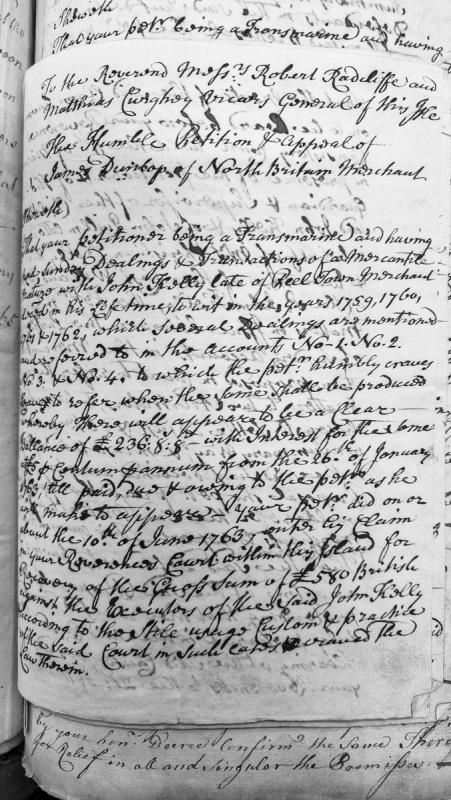 Sheweth
That your petr. being a Transmarine and having
To the Reverend Messrs. Robert Radcliffe and
Matthias Curghey Vicars General of this Isle
The Humble Petition & Appeal of
James Dunlop of North Britain Merchant
Sheweth
That your petitioner being a Transmarine and having
had Sundry Dealings & Transactions of a Mercantile
Nature with John Kelly late of Peel Town Merchant
deced in his life time, to wit in the years 1759, 1760,
1761 & 1762, which several Dealings are mentioned
and referred to in the accounts No. 1. No. 2.
No. 3. & No. 4. to which the petr. humbly craves
leave to refer when the same shall be produced
whereby there will appear to be a Clear
Ballance of £236. 8. 8 with Interest for the same
at 5 p Centum p annum from the 26th. of January
1763 till paid, due & owing to the petr. as he
will make to appear – your petr. did on or
about the 10th. of June 1763, enter his Claim
in your Reverences Court within this Island for
Recovery of the Gross Sum of £580 British
against the Executors of the said John Kelly
according to the Stile usage Custom & practice
of the said Court in Such cases & craved the
Law therein.
by your honrs. Decree Confirm the Same
for Relief in all and singular the Premisses